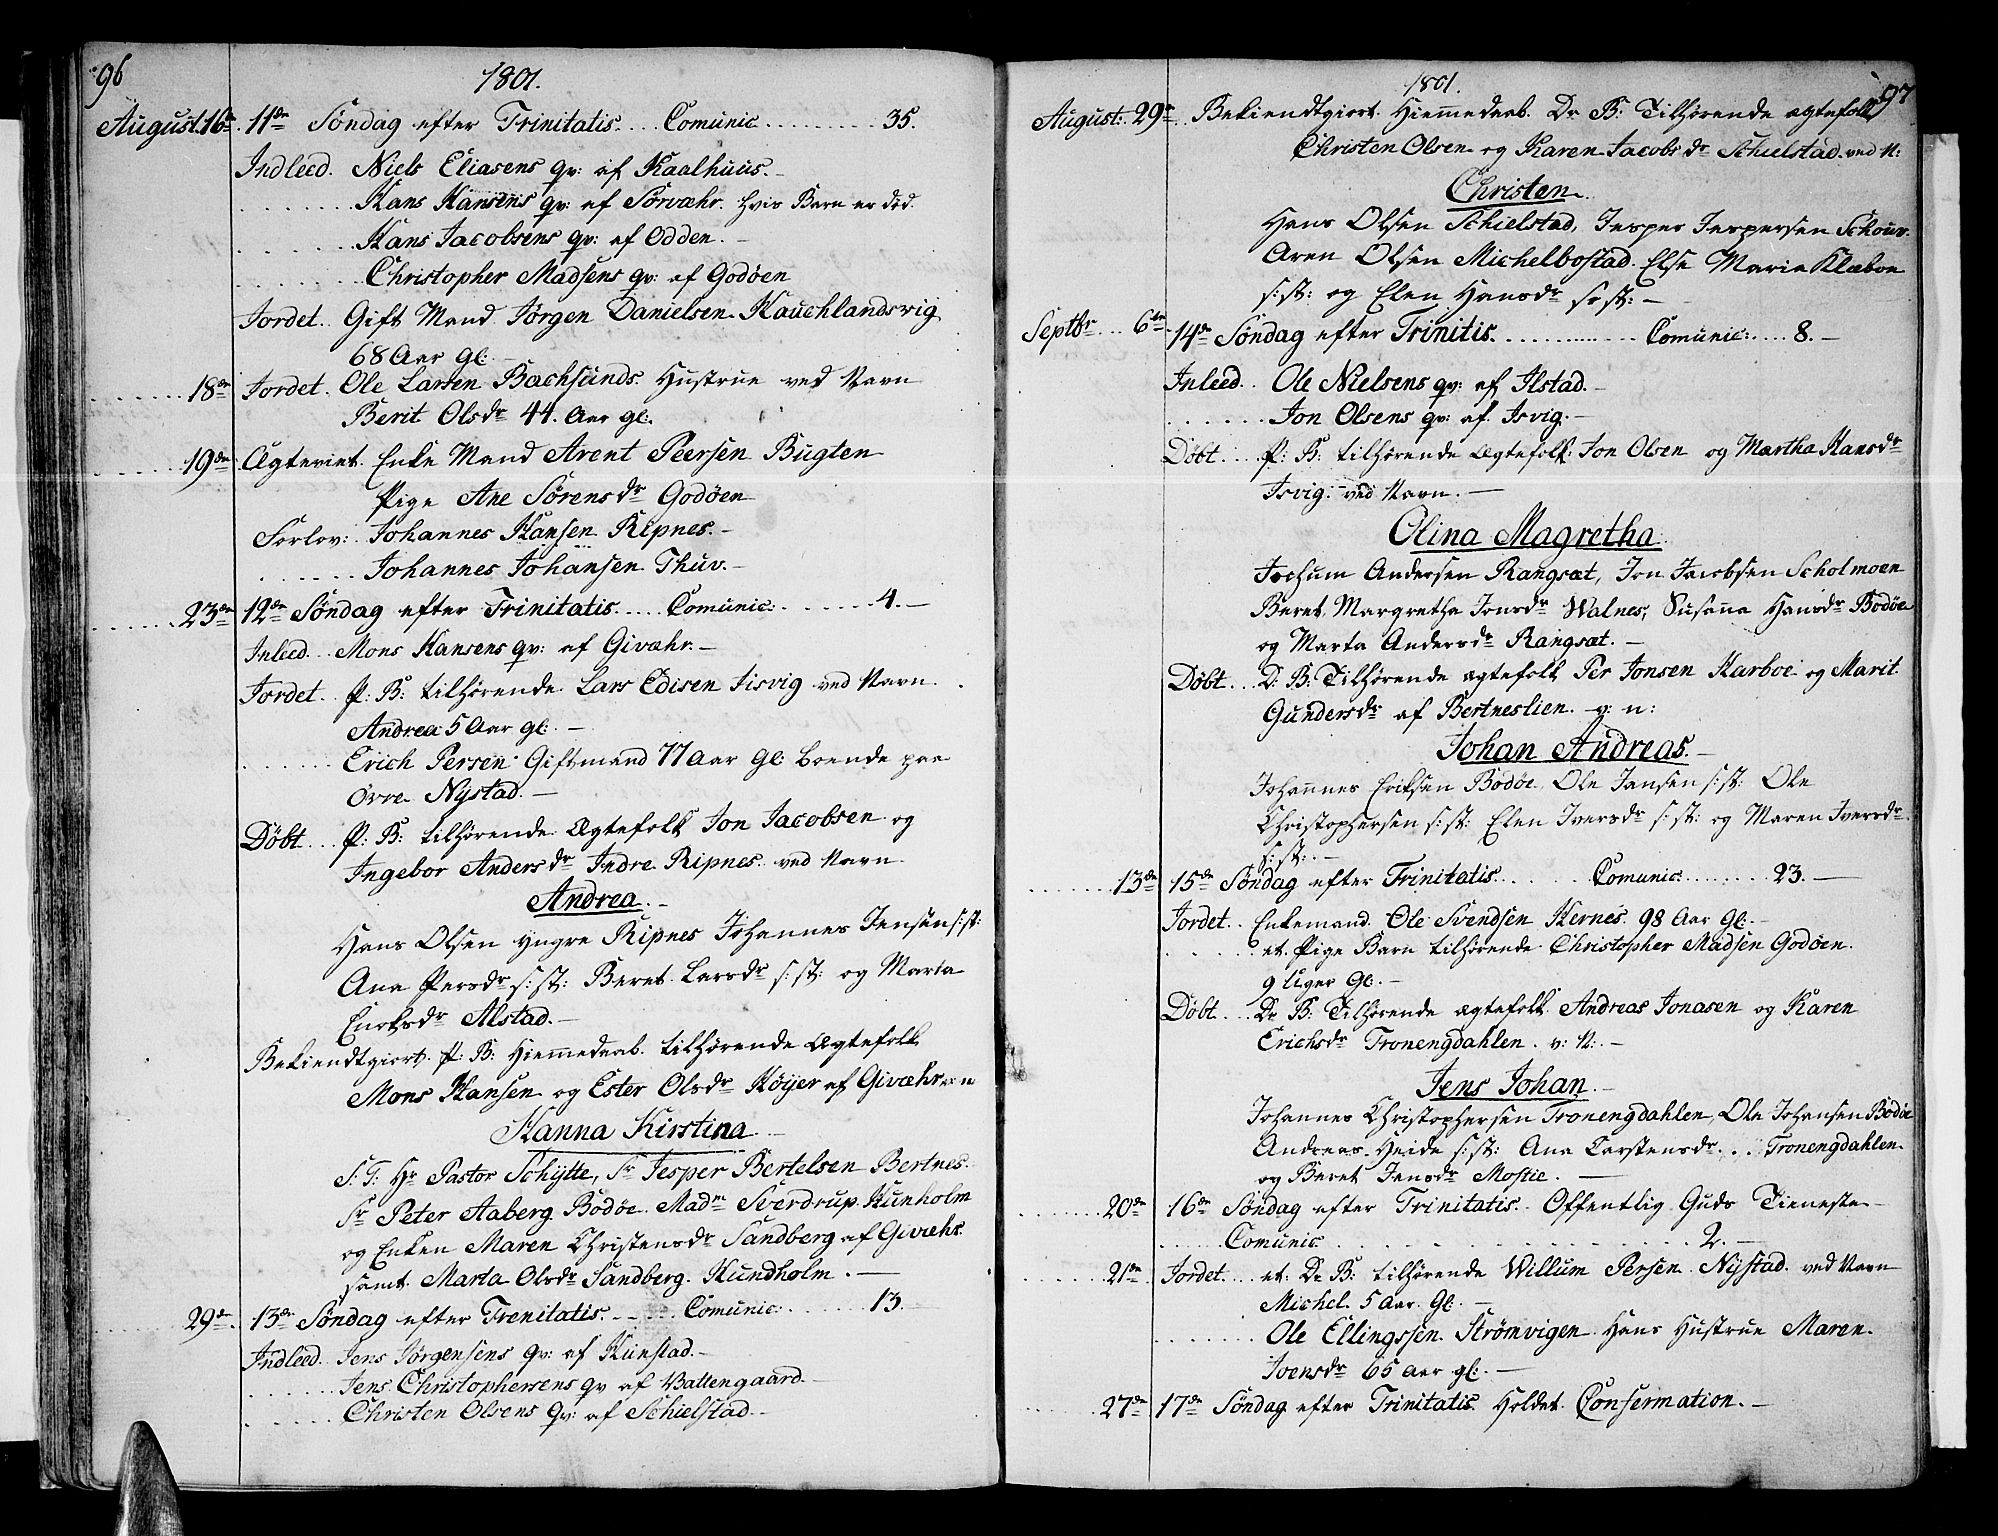 96
1801.
August. 16de 11de Søndag efter Trinitatis .... Comunic .......... 35.
Indleed. Niels Eliasens qv: af Kaalhuus.
....... Hans Hansens qv: af Sorvæhr. hvis Barn er død.
....... Hans Jacobsens qv: af Odden.
....... Christopher Madsens qv: af Godøen
Jordet.. Gift Mand Jørgen Danielsen Kauchlandsvig
68 Aar gl:
...... 18de Jordet. Ole Larsen Bachsunds. Hustrue ved Navn
Berit Olsdr 44. Aar gl:
...... 19de Ægteviet. Enke Mand Arent Peersen Bugten
Pige Ane Sørensdr Godøen
Forlov: Johannes Hansen Ripnes.
...... Johannes Johansen Thuv.
...... 23de 12de Søndag efter Trinitatis .... Comunic: ....... 4.
Inleed... Mons Hansens qv: af Givæhr.
Jordet.. P: B: tilhørende Lars Edisen Jisvig ved Navn
Andrea 5 Aar gl:
...... Erich Persen Giftmand 77 Aar gl: boende paa
Øvre Nystad.
Døbt... P: B: tilhørende Ægtefolk Jon Jacobsen og
Ingebor Andersdr Indre Ripnes. ved Navn
Andrea.
Hans Olsen yngre Ripnes Johannes Jensen s: st:
Ana Persdr s: st: Beret Larsdr s: st: og Marta
Alstad.
Bekiendtgiort. P: B: Hiemmedøb. tilhørende Ægtefolk
Mons Hansen og Ester Olsdr Høyer af Givæhr
Hanna Kirstina
S: T: Hr Pastor Schytte, Sr Jesper Bertelsen Bertnes.
Sr Peter Aaberg Bodøe. Madm Sverdrup Kunholm
og Enken Maren Christensdr Sandberg af Givæhr
samt Marta Olsdr Sandberg. Kundholm.
...... 29de. 13de Søndag efter Trenitatis ...... Comunic: ...... 13.
Indleed. Jens Jørgensens qv: af Kunstad.
...... Jens Christophersens qv af Vattengaard.
...... Christen Olsens qv: af Schielstad
1801.
97
August. 29de.. Bekiendtgiort. Hiemmedøb. Dr B: Tilhørende ægtefolk
Christen Olsen og Karen Jacobsdr Schielstad. ved N:
Christen.
Hans Olsen Schielstad, Jesper Jespersen Schouv.
Aren Olsen Michelbostad. Else Maria Klæboe
s: st: og Elen Hansdr s: st:
Septbr... 6te 14de Søndag efter Trinitis .............. Comunic: .... 8.
Inleed.. Ole Nielsens qv: af Ilstad.
...... Jon Olsens qv: af Isvig.
Døbt .... P: B: tilhørende Ægtefolk: Jon Olsen og Martha Hansdr
Isvig. ved Navn.
Olina Magretha.
Jochum Andersen Rangsæt, Jon Jacobsen Scholmoen
Beret Margretha Jonsdr Walnes, Susana Hansdr Bodøe
og Marta Andersdr Rangsæt.
Døbt... D: B: Tilhørende ægtefolk Per Jonsen Karboe og Marit
Gundersdr af Bertneslien. v: n:
Johan Andreas.
Johannes Eriksen Bodøe, Ole Jansen s: st: Ole
Christophersen s: st: Elen Iversdr s: st: og Maren Iversdr
s: st:
...... 13de 15de Søndag efter Trinitatis ...... Comunic ........ 23.
Jordet.. Enkemand. Ole Svendsen Kernes. 98 Aar gl:
...... et Pige Barn tilhørende Christopher Madsen Godøen.
9 Uger gl:
Døbt... Dr B: Tilhørende ægtefolk. Andreas Jonasen og Karen
Erichsdr Tronengdahlen. v: N:
Jens Johan.
Johannes Christophersen Tronengdahlen, Ole Johansen Bodøe
Andreas Heide s: st: Ana Carstensdr... Tronengdahlen.
og Beret Jensdr Mostie.
...... 20de 16de Søndag efter Trinitatis. Offentlig Guds Tieneste
...... Comunic .............. 2.
...... 21de Jordet.... et Dr B: tilhørende Willum Persen Nystad. ved Navn
Michel. 5 Aar. gl:
...... Ole Ellingssen. Strømvigen. Hans Hustrue Maren.
Joensdr 65 Aar gl:
...... 27de 17de Søndag efter Trinitatis. Holdet Consermation.